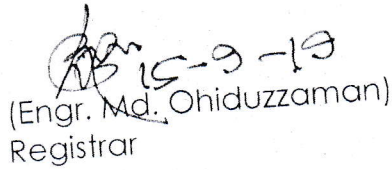 15-9-19
(Engr. Md. Ohiduzzaman)
Registrar